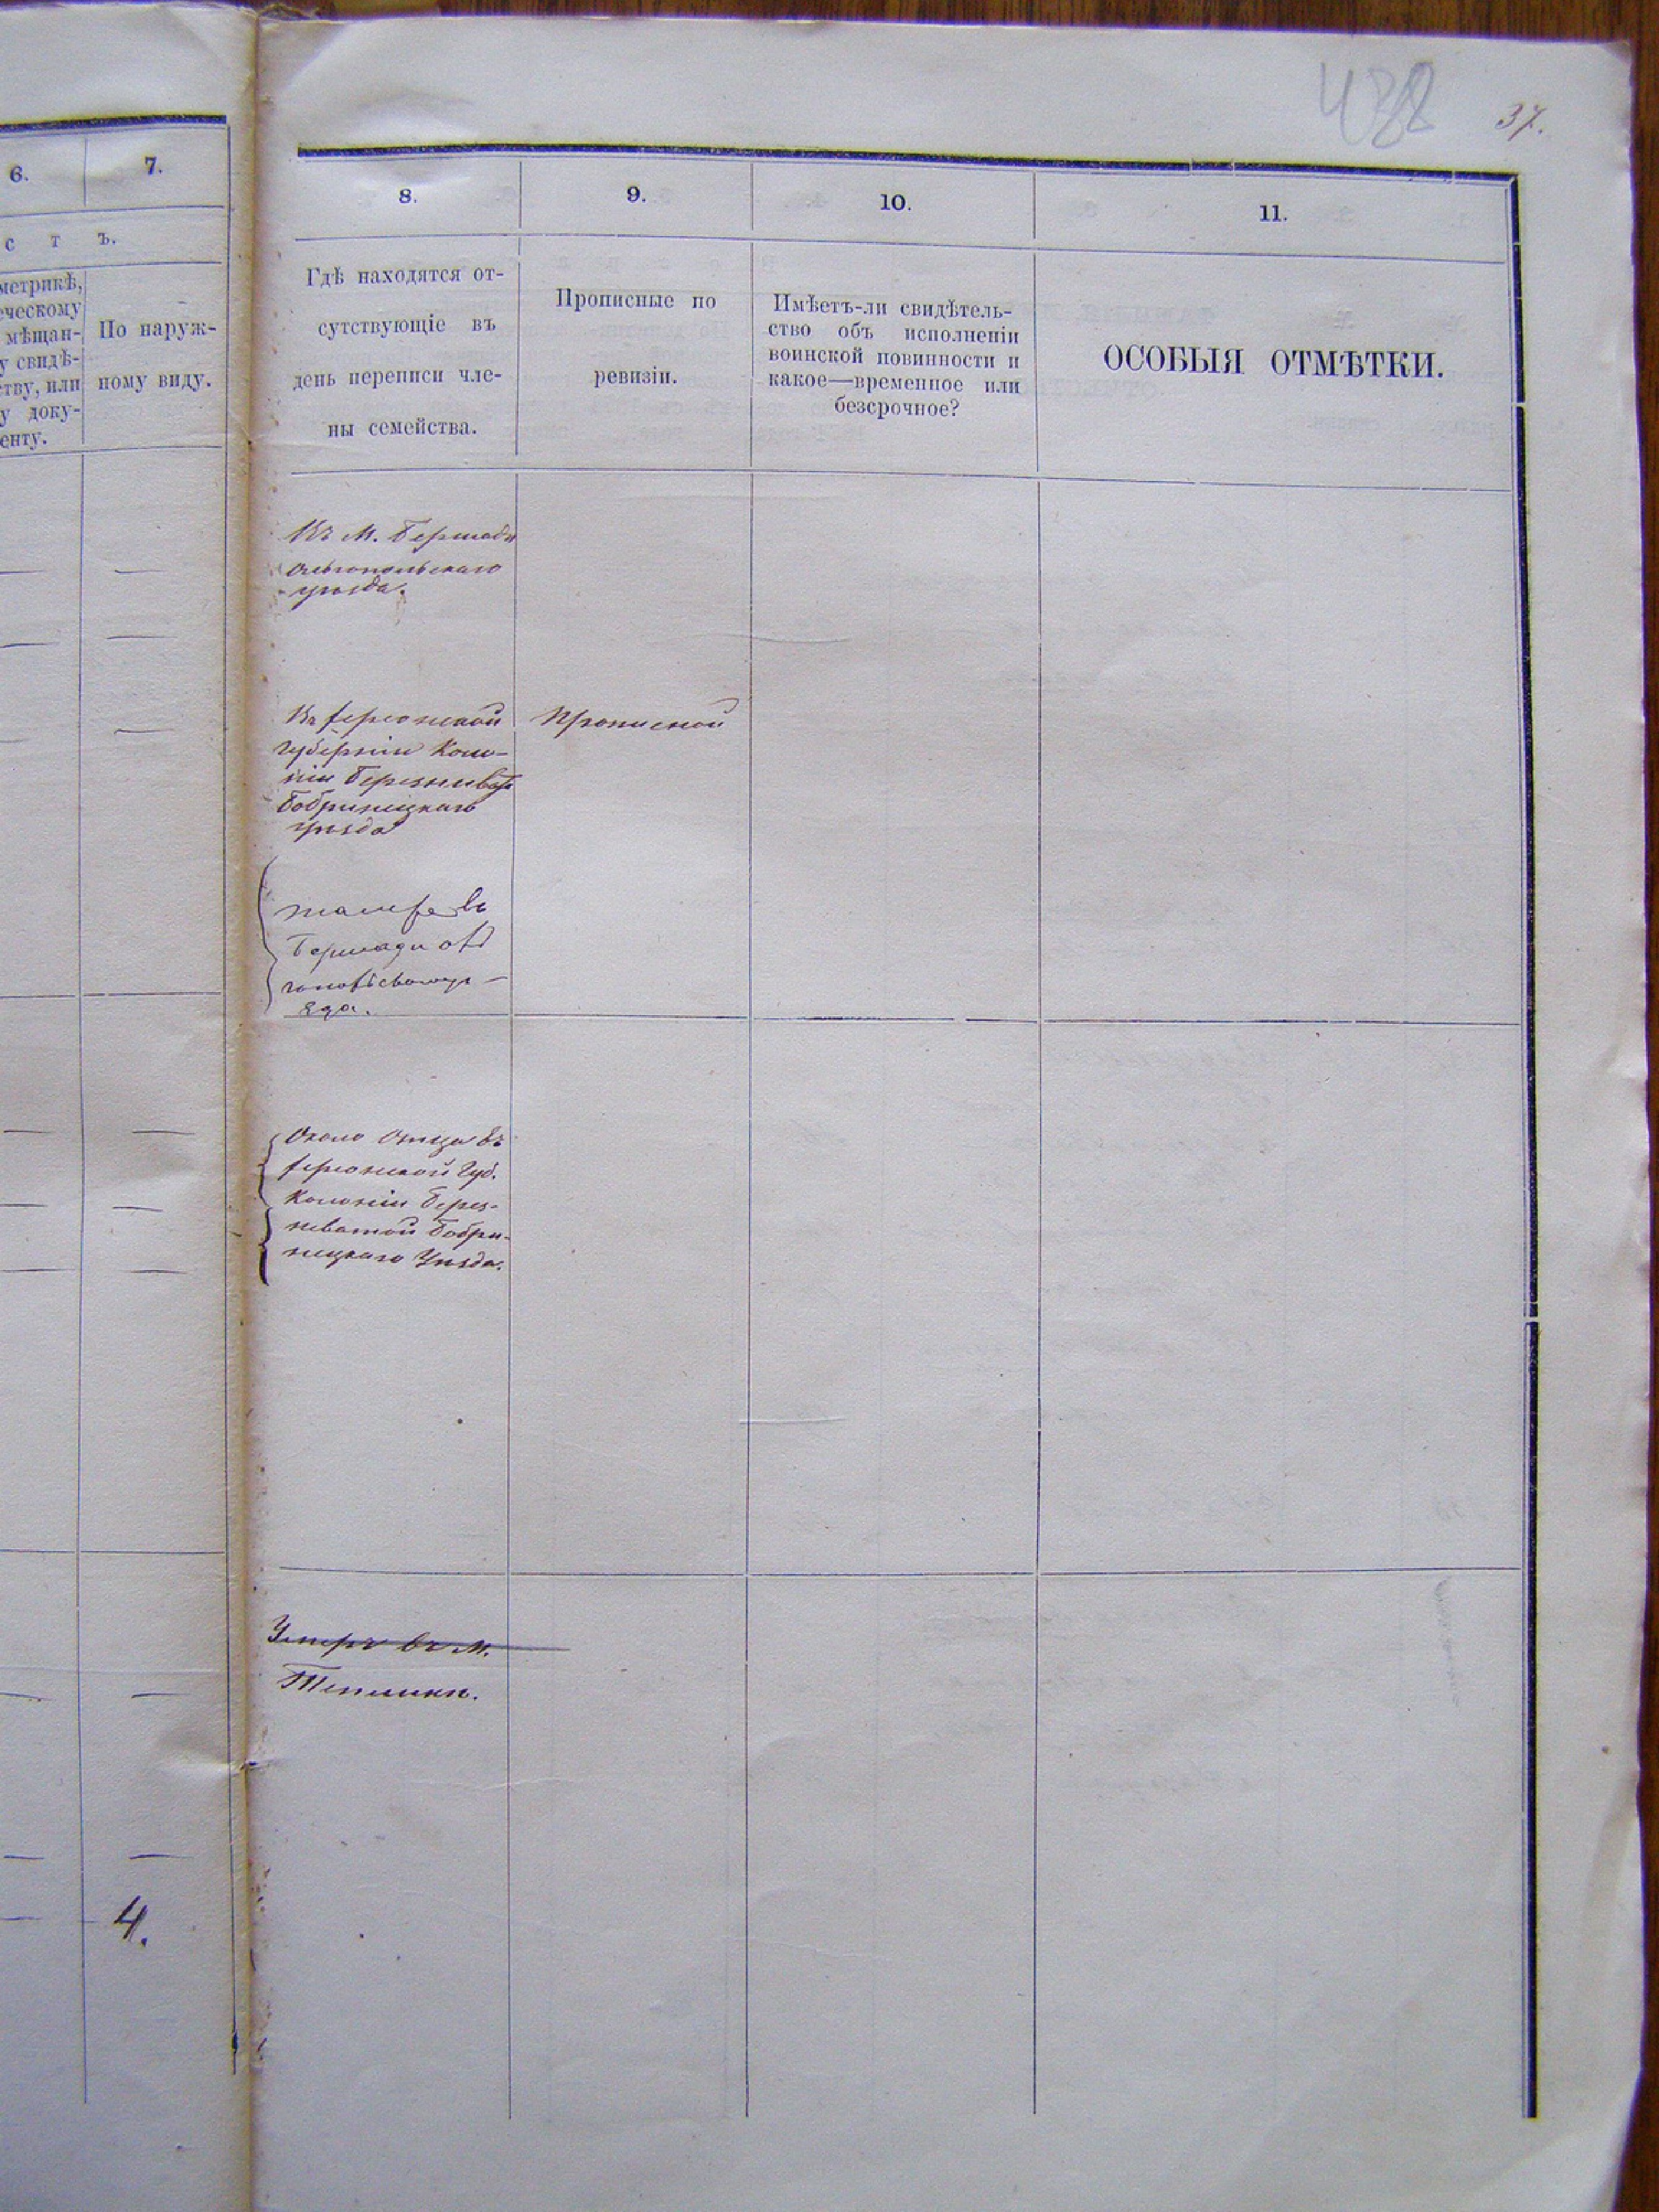 488 37.
6. 7.
с т ъ.
метрикѣ,
ческому
мѣщан-
у свидѣ-
ству, или
у доку-
енту.
По наруж-
ному виду.
4.
8. 9. 10. 11.
Гдѣ находятся от-
сутствующіе въ
день переписи чле-
ны семейства.
Прописные по
ревизіи.
Имѣетъ-ли свидѣтель-
ство объ исполненіи
воинской повинности и
какое—временное или
безсрочное?
ОСОБЫЯ ОТМѢТКИ.
Въ М. Бершади
Ольгопольскаго
уѣзда.
Въ Херсонской
губерніи Коло-
ніи Березневатой
Бобринецкаго
уѣзда
Прописной
также въ
Бершади
ѣзда.
Около Отца въ
Херсонской Губ.
Колоніи Берез-
неватой Бобри-
нецкаго Уѣзда.
Умеръ въ М.
Тепликѣ.